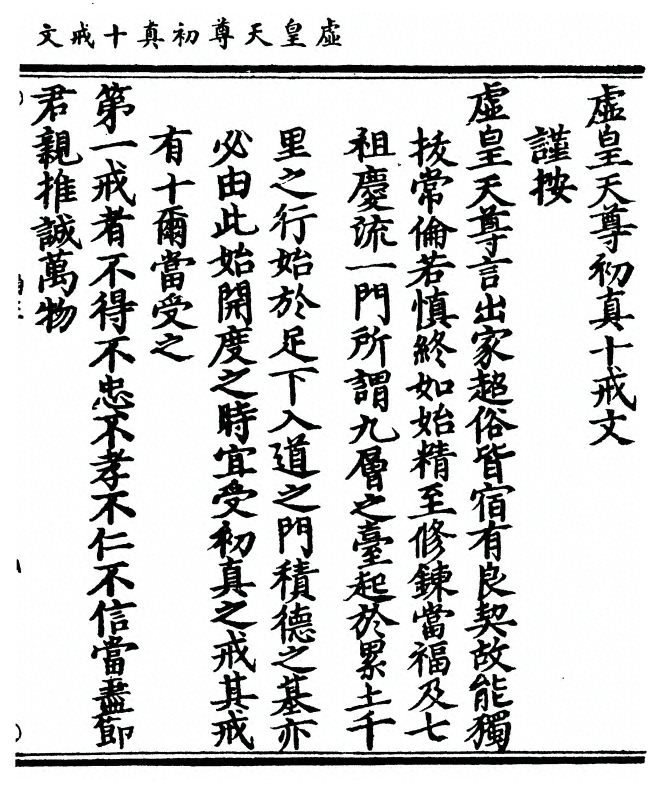 虛皇天尊初真十戒文
虛皇天尊初真十戒文
謹按
虛皇天尊言出家超俗皆宿有良契故能獨
拔常倫若慎終如始精至修鍊當福及七
祖慶流一門所謂九層之臺起於累土千
里之行始於足下入道之門積德之基亦
必由此始開度之時宜受初真之戒其戒
有十爾當受之
第一戒者不得不忠不孝不仁不信當盡節
君親推誠萬物